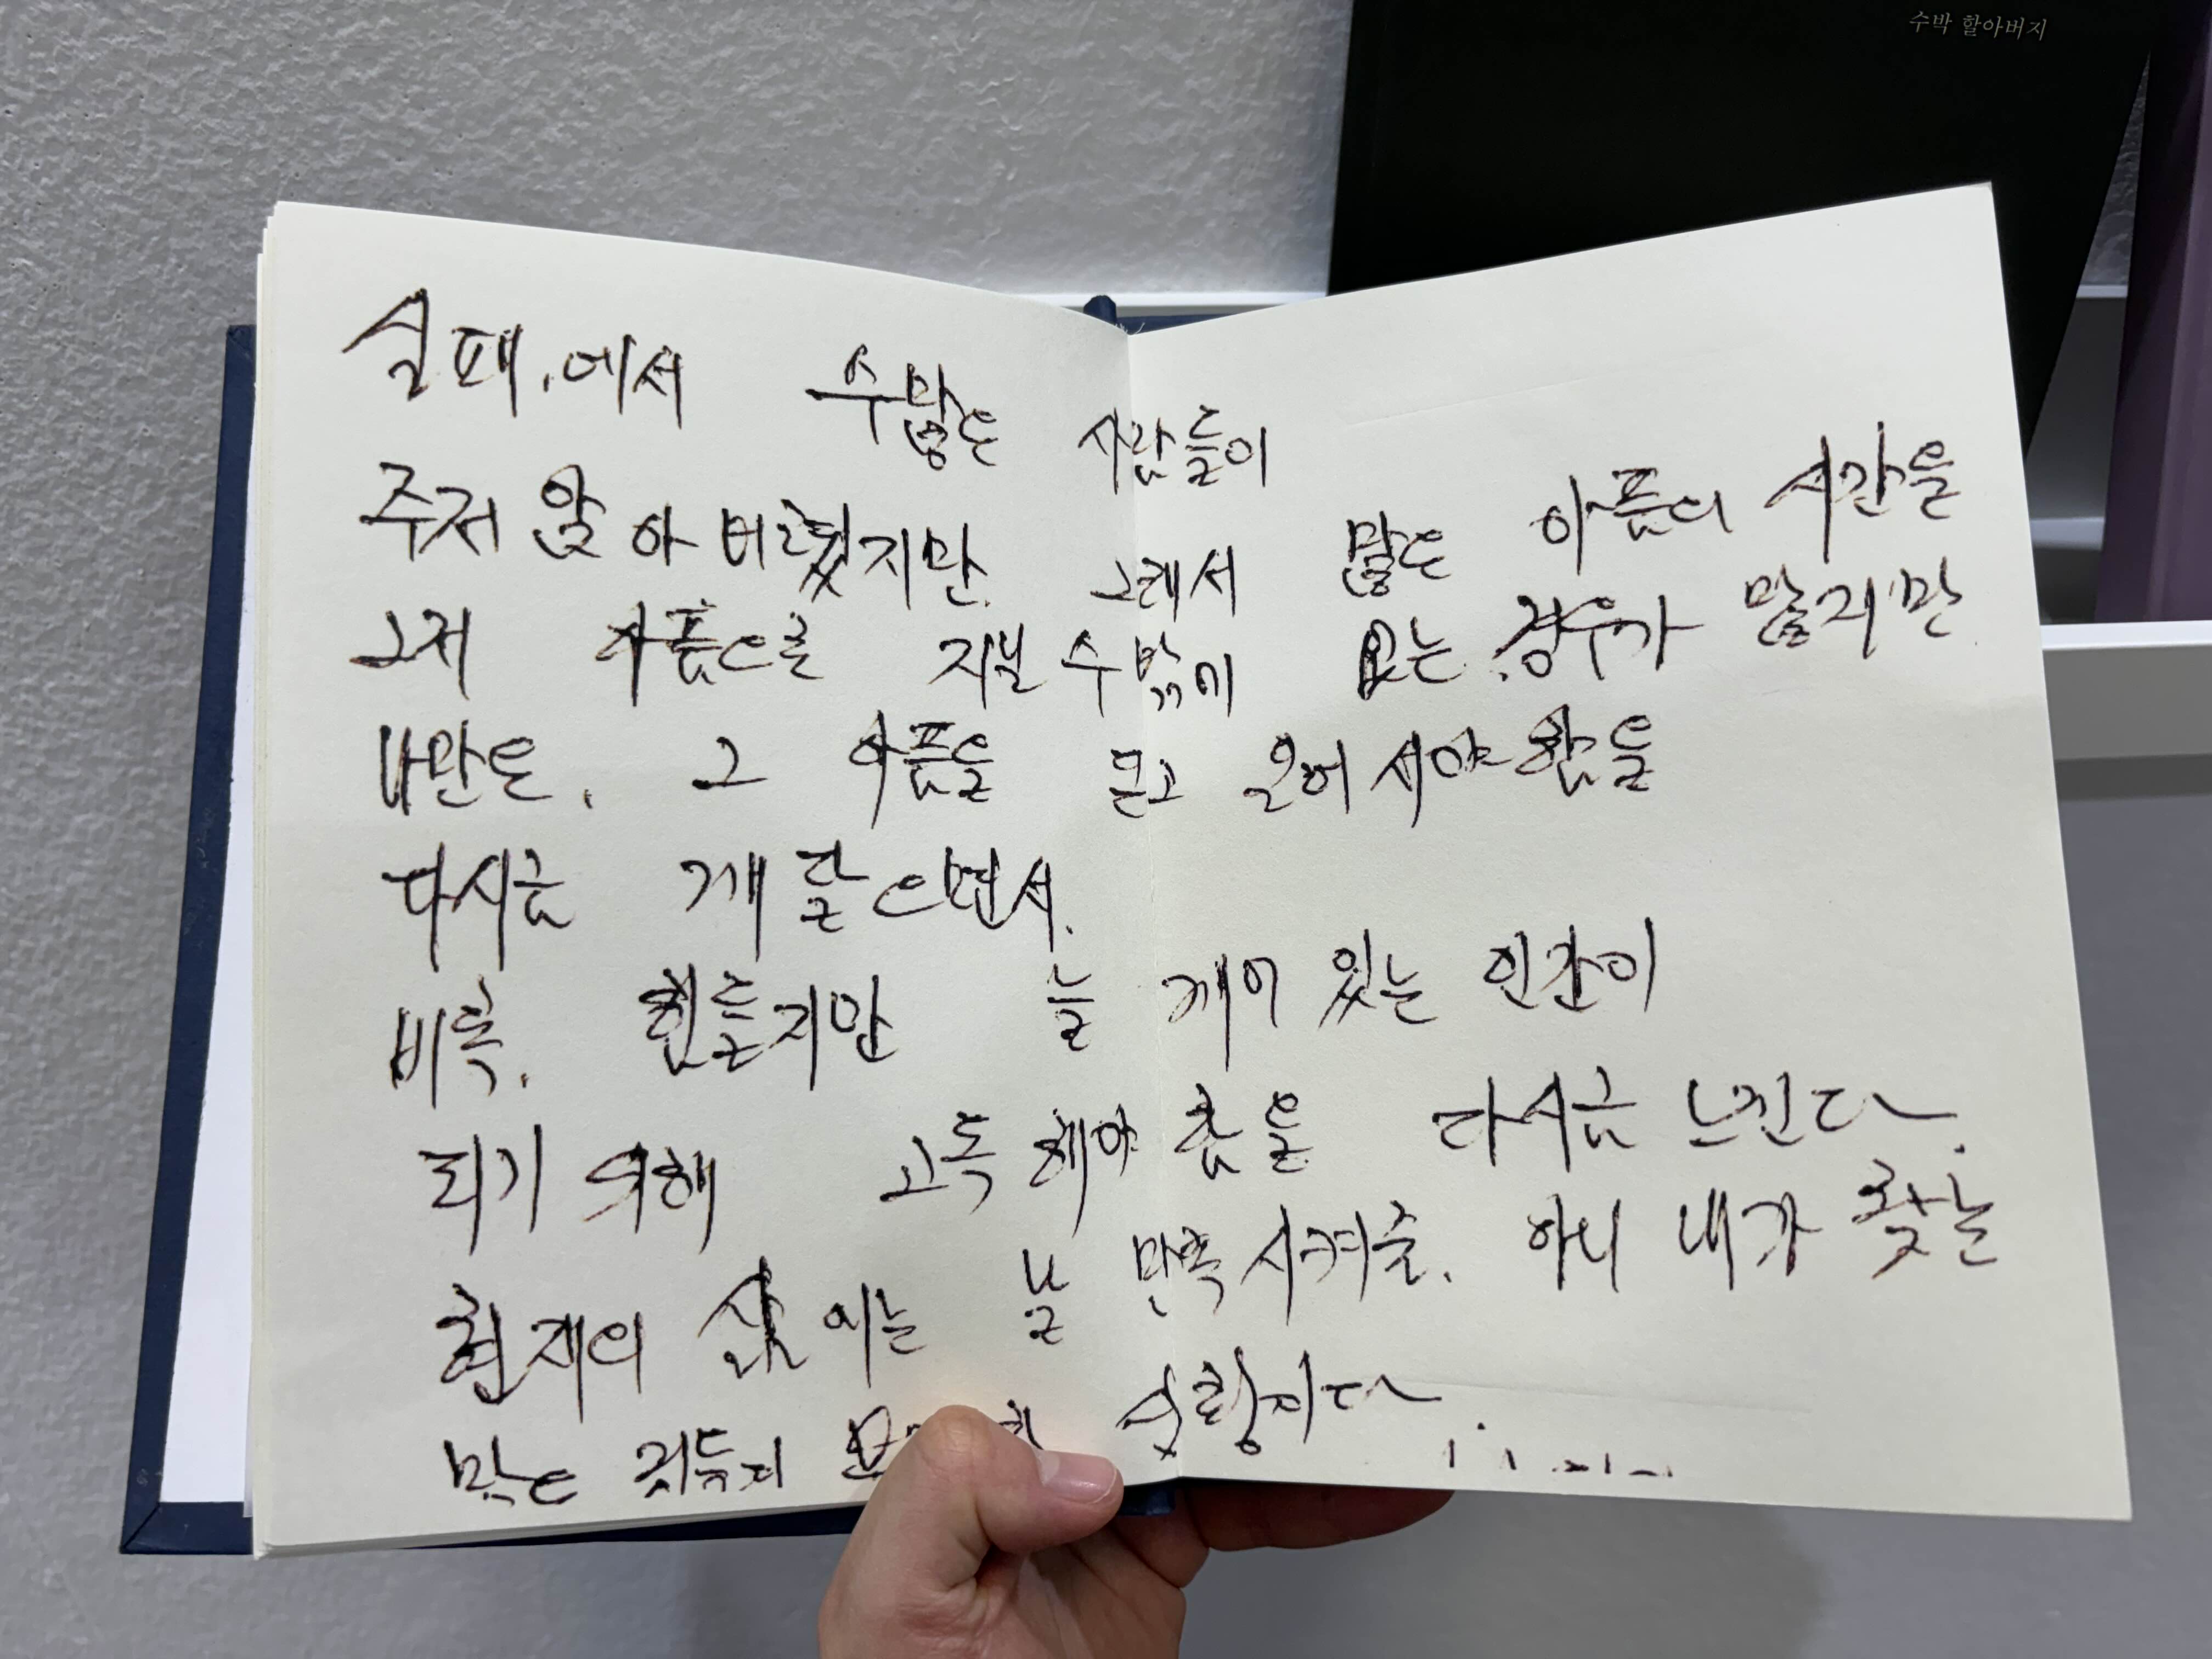 수박 할아버지
실패.에서 수많은 사람들이
주저 앉아 버렸지만. 그래서 많은 아픔의 시간을
그저 아픔으로 지낼 수밖에 없는 경우가 많지만
나만은. 그 아픔을 딛고 일어 서야 함을
다시금 깨달으면서.
비록. 힘들지만 늘 깨어 있는 인간이
되기 위해 고독 해야 함을 다시금 느낀다.
현재의 삶 이는 날 만족 시켜줄. 아니 내가 찾는
많은 것들지 못할지다